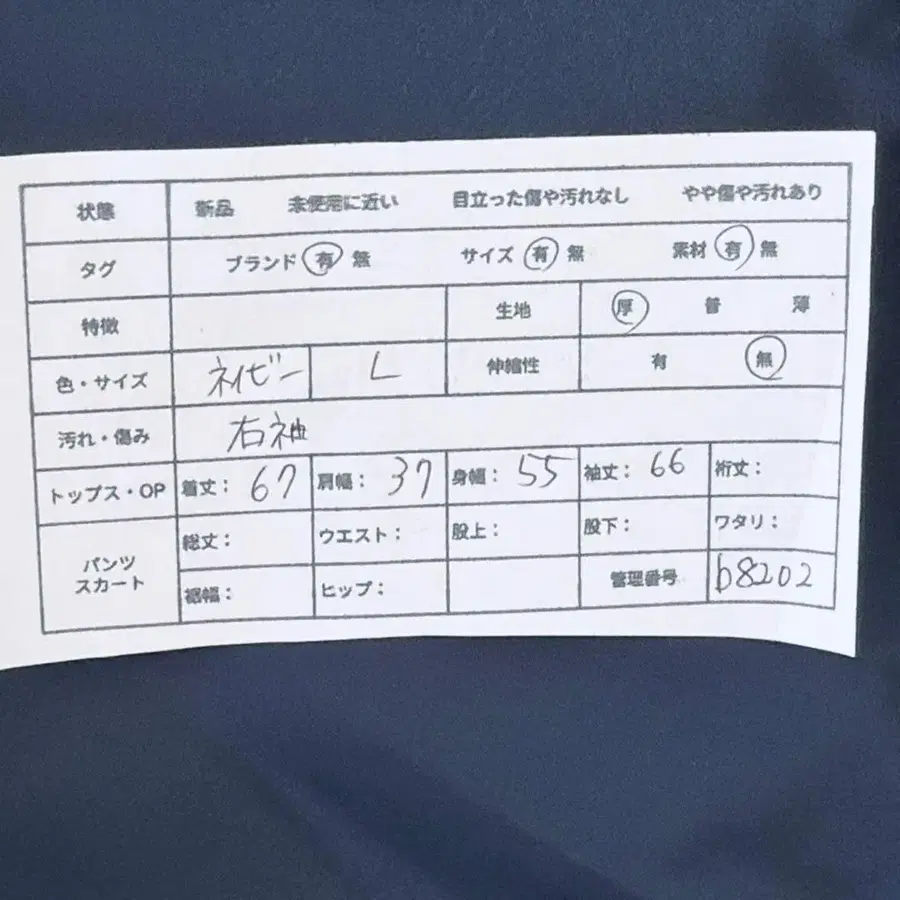 状態 新品 未使用に近い 目立った傷や汚れなし やや傷や汚れあり
タグ ブランド 有 無 サイズ 有 無 素材 有 無
特徴 生地 厚 普 薄
色・サイズ ネイビー L 伸縮性 有 無
汚れ・傷み 右袖
トップス・OP 着丈: 67 肩幅: 37 身幅: 55 袖丈: 66 裄丈:
パンツ スカート 総丈: ウエスト: 股上: 股下: ワタリ:
裾幅: ヒップ: 管理番号 b8202